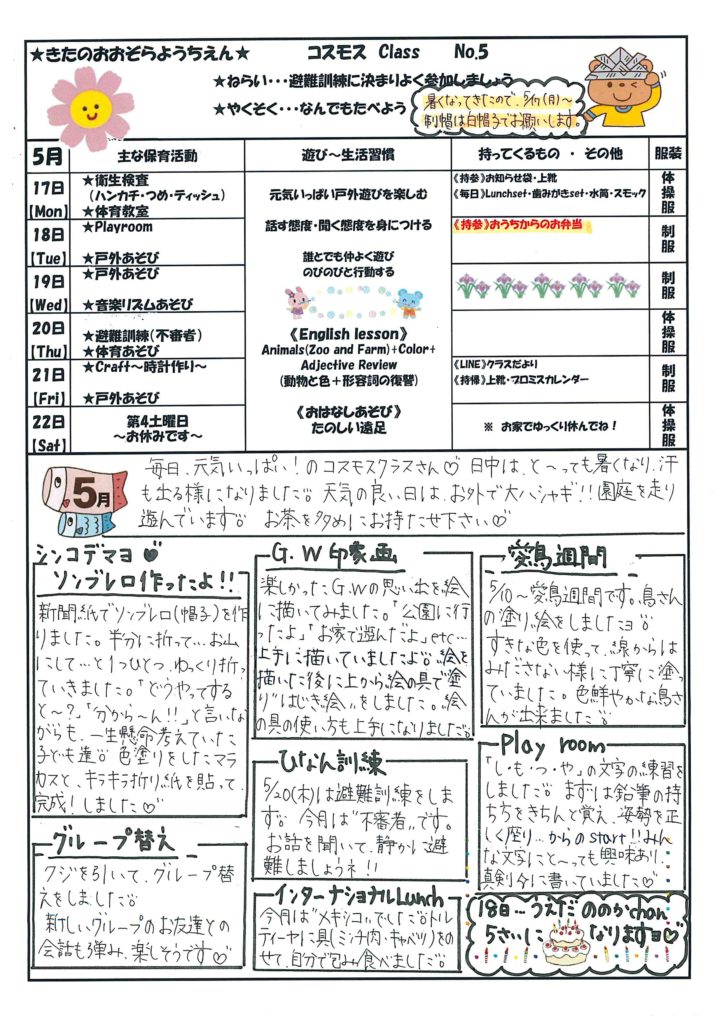 ★きたのおおぞらようちえん★ コスモス Class No.5
★ねらい・・・避難訓練に決まりよく参加しましょう
★やくそく・・・なんでもたべよう
暑くなってきたので、5/17(月)〜
制帽は白帽子でお願いします。
5月 主な保育活動 遊び〜生活習慣 持ってくるもの ・ その他 服装
17日
【Mon】
★衛生検査
(ハンカチ・つめ・ティッシュ)
★体育教室
《持参》お知らせ袋・上靴
《毎日》Lunchset・歯みがきset・水筒・スモック
体操服
18日
【Tue】
★Playroom
★戸外あそび
《持参》おうちからのお弁当
制服
19日
【Wed】
★戸外あそび
★音楽リズムあそび
制服
20日
【Thu】
★避難訓練(不審者)
★体育あそび
体操服
21日
【Fri】
★Craft〜時計作り〜
★戸外あそび
《LINE》クラスだより
《持帰》上靴・プロミスカレンダー
制服
22日
【Sat】
第4土曜日
〜お休みです〜
※ お家でゆっくり休んでね!
体操服
元気いっぱい戸外遊びを楽しむ
話す態度・聞く態度を身につける
誰とでも仲よく遊び
のびのびと行動する
《English lesson》
Animals(Zoo and Farm)+Color+
Adjective Review
(動物と色+形容詞の復讐)
《おはなしあそび》
たのしい遠足
5月
毎日、元気いっぱい!のコスモスクラスさん♡ 日中は、と〜っても暑くなり、汗
も出る様になりました。天気の良い日は、お外で大ハシャギ!!園庭を走り
遊んでいます。 お茶を多めにお持たせ下さい♡
シンコデマヨ♥
ソンブレロ作ったよ!!
新聞紙でソンブレロ(帽子)を作
りました。半分に折って…お山
にして…と1つひとつ、ゆっくり折っ
ていきました。「どうやってする
と〜?」「分から〜ん!!」と言いな
がらも、一生懸命考えていた
子ども達。色塗りをしたマラ
カスと、キラキラ折り紙を貼って、
完成!しました♡
グループ替え
クジを引いて、グループ替
えをしました。
新しいグループのお友達との
会話も弾み、楽しそうです♡
G.W印象画
楽しかったG.Wの思い出を絵
に描いてみました。「公園に行
ったよ」「お家で遊んだよ」etc…
上手に描いていましたよ。絵を
描いた後に上から絵の具で塗
り"はじき絵"をしました。絵
の具の使い方も上手になりました。
ひなん訓練
5/20(木)は避難訓練をしま
す。今月は"不審者"です。
お話を聞いて、静かに避
難しましょうネ!!
インターナショナルLunch
今月は"メキシコ"でした。トル
ティーヤに具(ミンチ肉・キャベツ)をの
せて、自分で包み食べました。
愛鳥週間
5/10〜愛鳥週間です。鳥さん
の塗り絵をしましたヨ。
すきな色を使って、線からは
みださない様に丁寧に塗っ
ていました。色鮮やかな鳥さ
んが出来ました。
Play room
「し・も・つ・や」の文字の練習を
しました。まずは鉛筆の持
ち方をきちんと覚え、姿勢を正
しく座り…からのstart!!みん
な文字にと〜っても興味あり、
真剣に書いていました♡
18日…うえだ ののかchan
5さいに なりますヨ♡